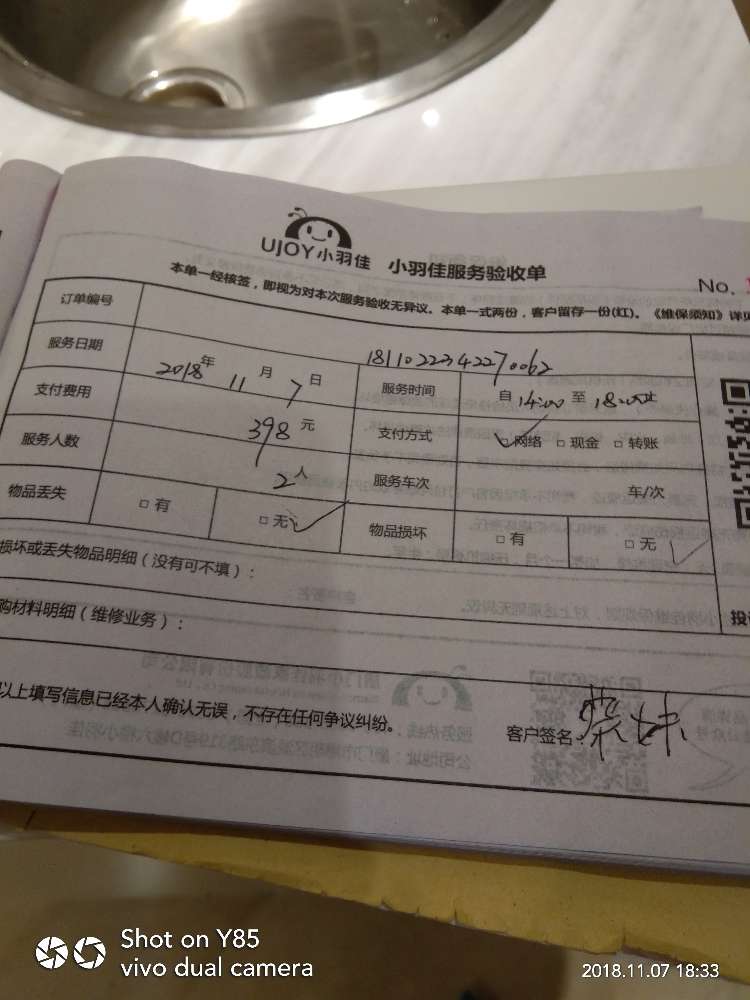 UJOY小羽佳 小羽佳服务验收单
No.
本单一经核签，即视为对本次服务验收无异议。本单一式两份，客户留存一份(红)。《维保须知》详见
订单编号 1811022342270062
服务日期 2018年11月7日 服务时间 自14:00至18:00止
支付费用 398元 支付方式 □网络 □现金 □转账
服务人数 2人 服务车次 车/次
物品丢失 □有 □无 物品损坏 □有 □无
损坏或丢失物品明细（没有可不填）：
购材料明细（维修业务）：
投
以上填写信息已经本人确认无误，不存在任何争议纠纷。
客户签名：
Shot on Y85
vivo dual camera
2018.11.07 18:33